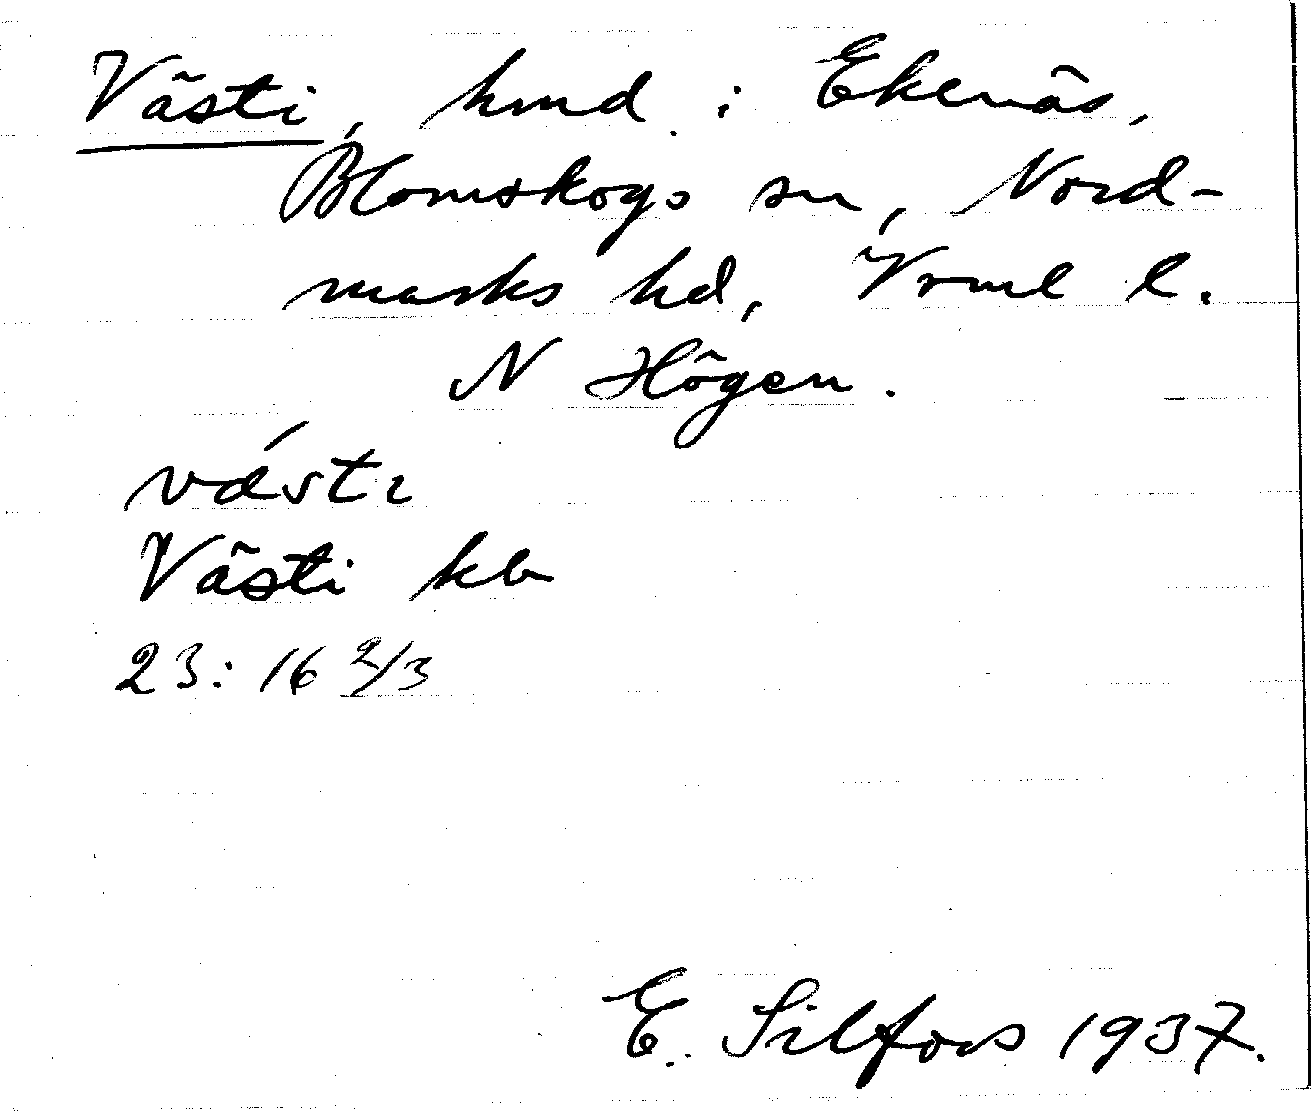 Västi, hmd i Ekenäs,
Blomskogs sn, Nord-
marks hd, Vrml l.
N Högen.
vásti
Västi kb
23:16 2/3
E. Silfors 1937.